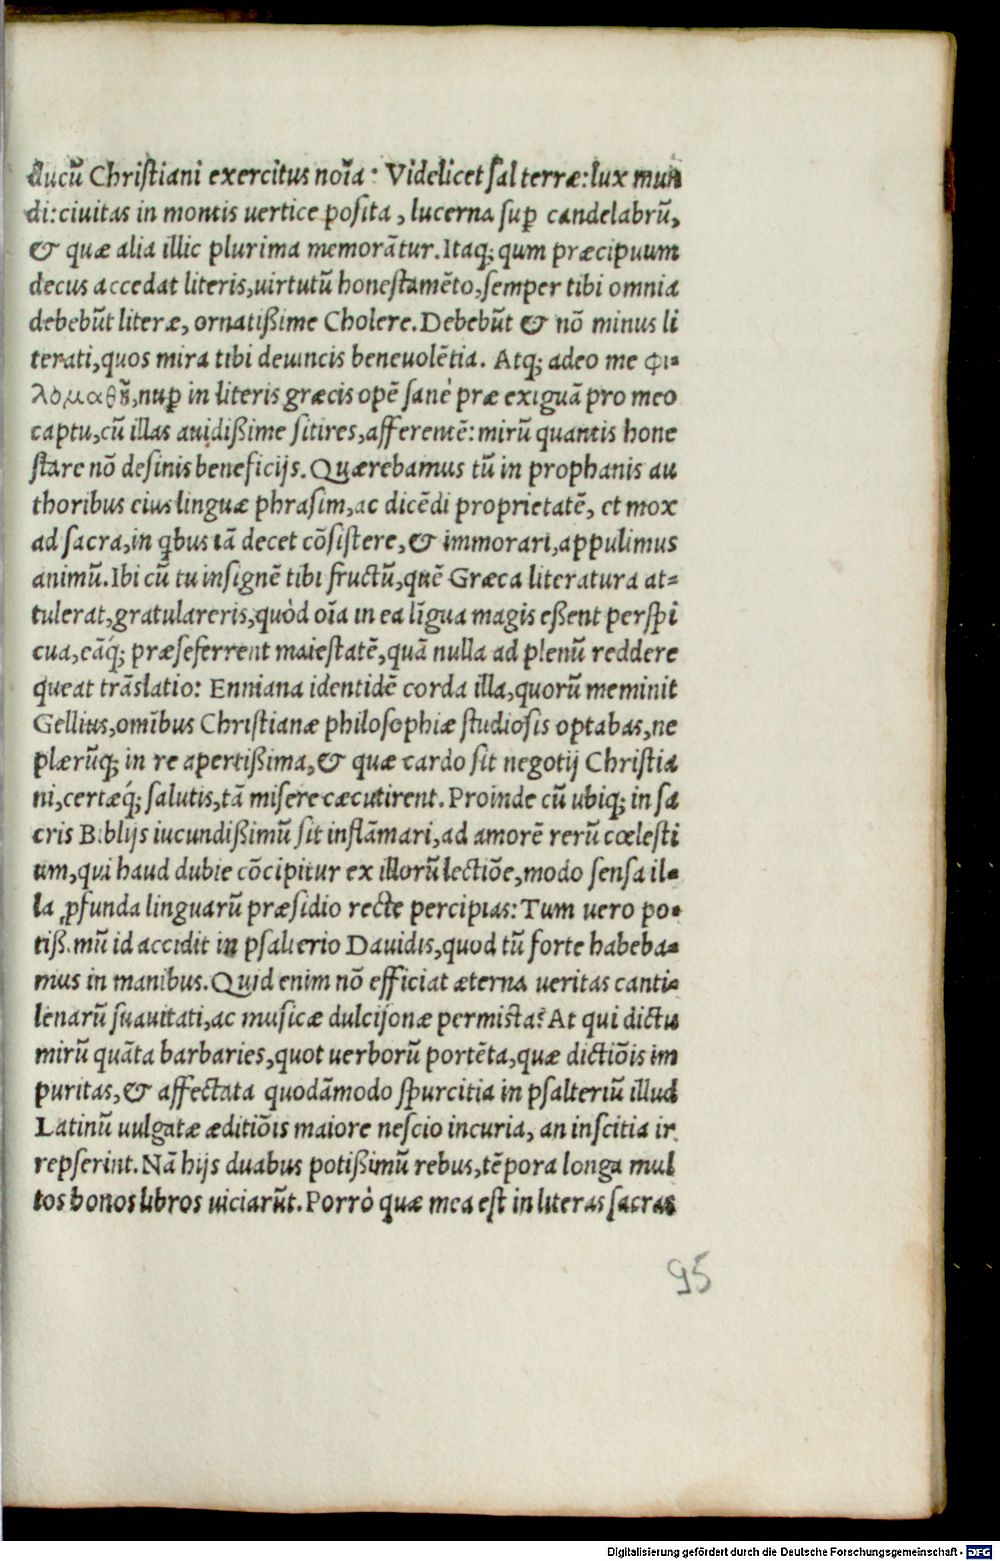 ducũ Christiani exercitus noĩa : Videlicet sal terræ: lux mun
di: ciuitas in montis uertice posita, lucerna sup̲ candelabrũ,
& quæ alia illic plurima memorãtur. Itaq; qum præcipuum
decus accedat literis, uirtutũ honestamẽto, semper tibi omnia
debebũt literæ, ornatißime Cholere. Debebũt & nõ minus li
terati, quos mira tibi deuincis beneuolẽtia. Atq; adeo me φι-
λομαθῆ, nup̲ in literis græcis opẽ sanè præ exiguã pro meo
captu, cũ illas auidißime sitires, afferentẽ: mirũ quantis hone
stare nõ desinis beneficijs. Quærebamus tũ in prophanis au
thoribus eius linguæ phrasim, ac dicẽdi proprietatẽ, et mox
ad sacra, in q̃bus iã decet cõsistere, & immorari, appulimus
animũ. Ibi cũ tu insignẽ tibi fructũ, quẽ Græca literatura at-
tulerat, gratulareris, quòd oĩa in ea lĩgua magis eßent perspi
cua, eãq́; præseferrent maiestatẽ, quã nulla ad plenũ reddere
queat trãslatio: Enniana identidẽ corda illa, quorũ meminit
Gellius, omĩbus Christianæ philosophiæ studiosis optabas, ne
plærũq; in re apertißima, & quæ cardo sit negotij Christia
ni, certæq́; salutis, tã misere cæcutirent. Proinde cũ ubiq; in sa
cris Biblijs iucundißimũ sit inflãmari, ad amorẽ rerũ cœlesti
um, qui haud dubie cõcipitur ex illorũ lectiõe, modo sensa il-
la ꝓfunda linguarũ præsidio recte percipias: Tum uero po-
tißimũ id accidit in psalterio Dauidis, quod tũ forte habeba-
mus in manibus. Quid enim nõ efficiat æterna ueritas canti-
lenarũ suauitati, ac musicæ dulcisonæ permista? At qui dictu
mirũ quãta barbaries, quot uerborũ portẽta, quæ dictiõis im
puritas, & affectata quodãmodo spurcitia in psalteriũ illud
Latinũ uulgatæ æditiõis maiore nescio incuria, an inscitia ir
repserint. Nã hijs duabus potißimũ rebus, tẽpora longa mul
tos bonos libros uiciarũt. Porrò quæ mea est in literas sacras
95
Digitalisierung gefördert durch die Deutsche Forschungsgemeinschaft - DFG